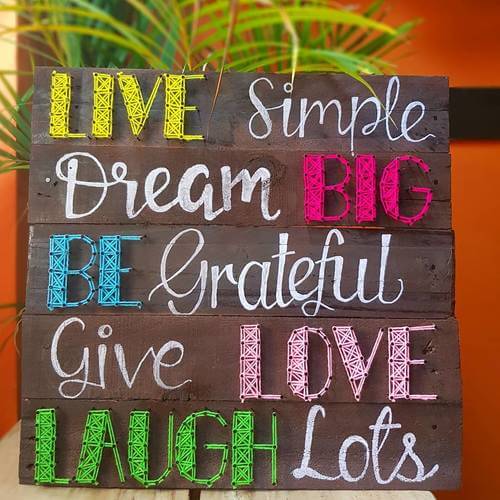 LIVE Simple
Dream BIG
BE Grateful
Give LOVE
LAUGH Lots